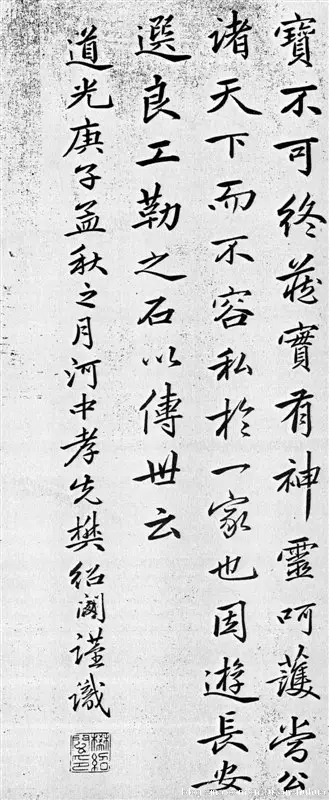 寶不可終藏實有神靈呵護當公
諸天下而不容私於一家也因遊長安
選良工勒之石以傳世云
道光庚子孟秋之月河中孝先樊紹閎謹識